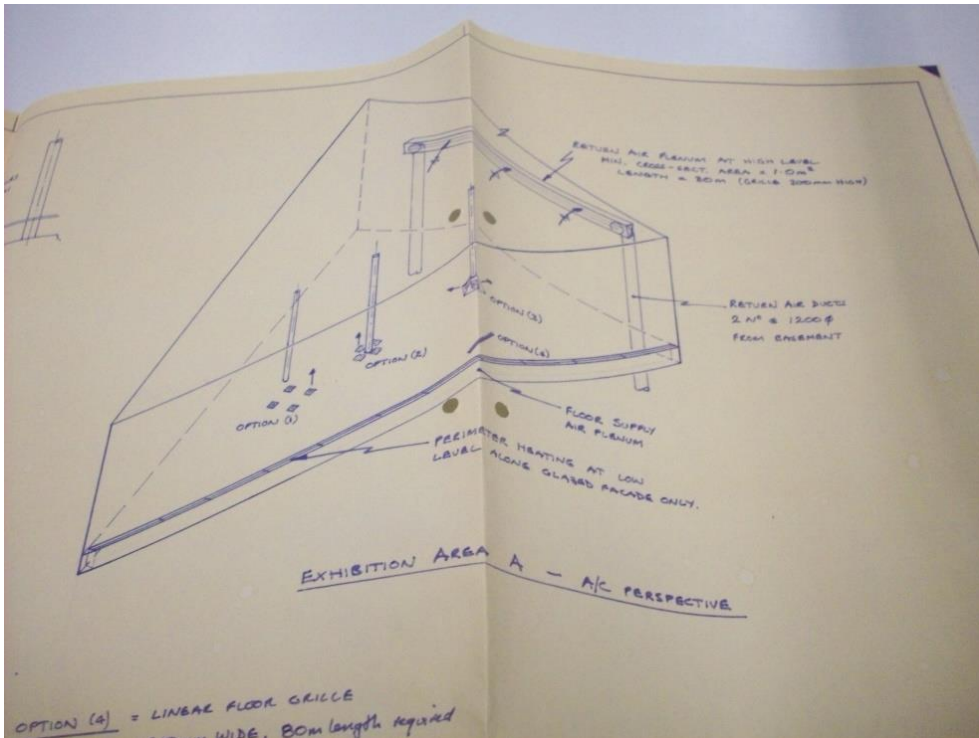 RETURN AIR PLENUM AT HIGH LEVEL
MIN. CROSS-SECT. AREA = 1.0m²
LENGTH = 30m (GRILLE 300mm HIGH)
RETURN AIR DUCTS
2 Nº @ 1200 ϕ
FROM BASEMENT
OPTION (3)
OPTION (2)
OPTION (4)
OPTION (1)
FLOOR SUPPLY
AIR PLENUM
PERIMETER HEATING AT LOW
LEVEL ALONG GLAZED FACADE ONLY.
EXHIBITION AREA A - A/C PERSPECTIVE
OPTION (4) = LINEAR FLOOR GRILLE
WIDE, 80m length required